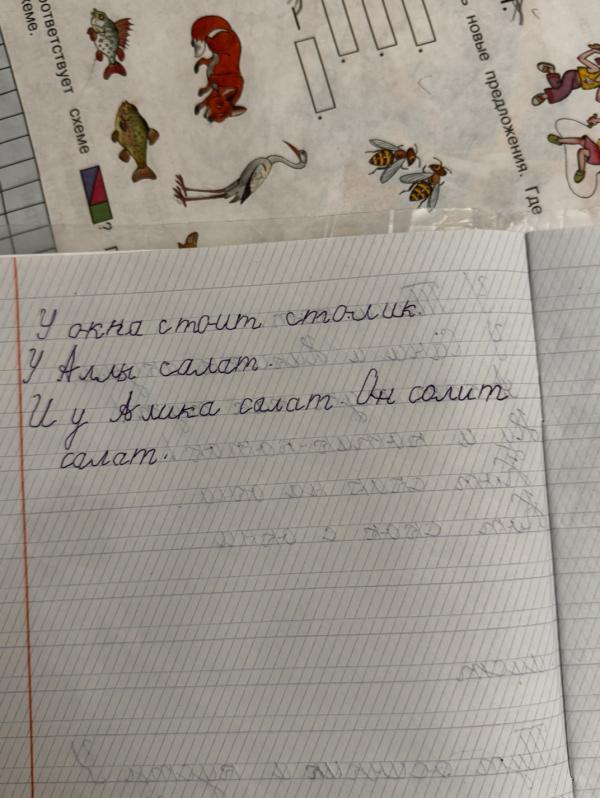 оответствует схеме
хеме.
?
ь новые предложения. Где
У окна стоит столик.
У Аллы салат.
И у Алика салат. Он солит
салат.